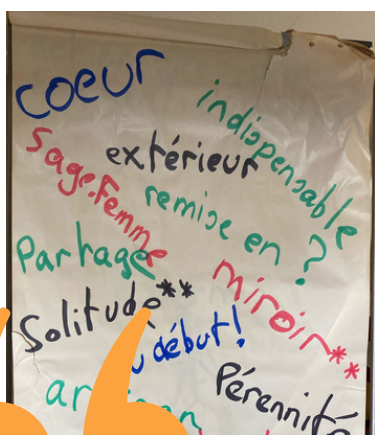 coeur
indispensable
extérieur
Sage.Femme
remise en ?
Partage
miroir**
Solitude**
début!
Pérennité